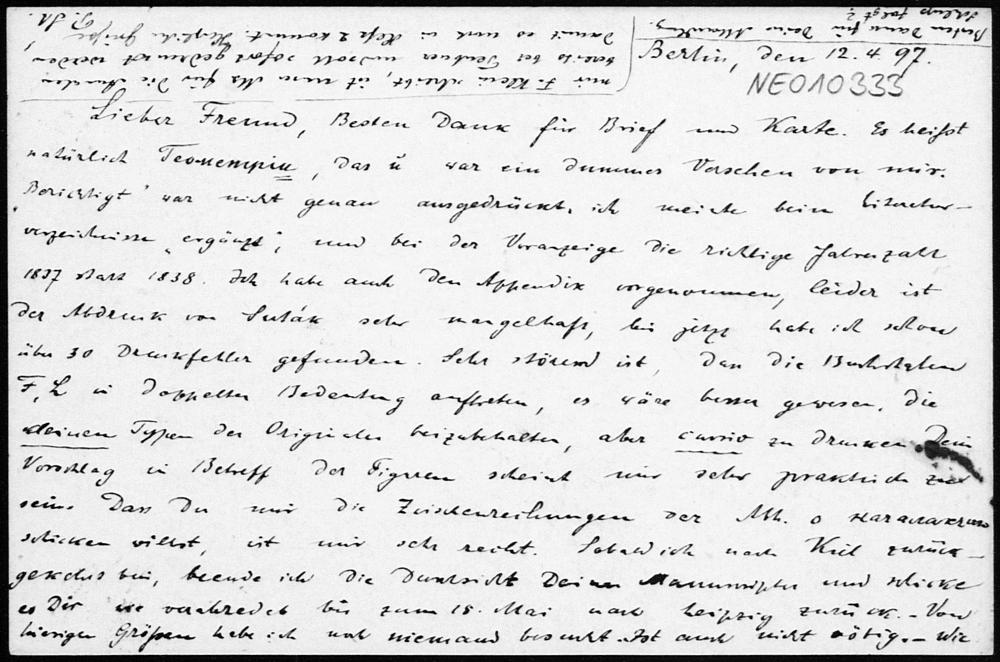 Berlin, den 12.4.97.
NEO10333
Lieber Freund, Besten Dank für Brief und Karte. Es heißt
natürlich Геометріи, das й war ein dummes Versehen von mir.
"Berichtigt" war nicht genau ausgedrückt. ich meinte beim Literatur-
verzeichnisse "ergänzt", und bei der Voranzeige die richtige Jahreszahl
1837 statt 1838. Ich habe auch den Appendix vorgenommen, leider ist
der Abdruck von Suták sehr mangelhaft, bis jetzt habe ich schon
über 30 Druckfehler gefunden. Sehr störend ist, dass die Buchstaben
F, L in doppelter Bedeutung auftreten, es wäre besser gewesen, die
kleinen Typen des Originales beizubehalten, aber cursiv zu drucken. Dein
Vorschlag in Betreff der Figuren scheint mir sehr praktisch zu
sein. Dass Du mir die Zwischenreihungen der Abh. о началахъ
schicken willst, ist mir sehr recht. Sobald ich nach Kiel zurück-
gekehrt bin, beende ich die Durchsicht Deines Manuscriptes und schicke
es Dir wie verabredet bis zum 18. Mai nach Leipzig zurück. - Von
hiesigen Größen habe ich noch niemand besucht. Ist auch nicht nötig. - Wie
mir F. Klein schreibt, ist mein Ms für die Annalen
bereits bei Teubner und soll sofort gedruckt werden
damit es noch in Heft 2 kommt. Herzliche Grüße,
P. St.
Besten Dank für Deine Abhandlung.
folgt?